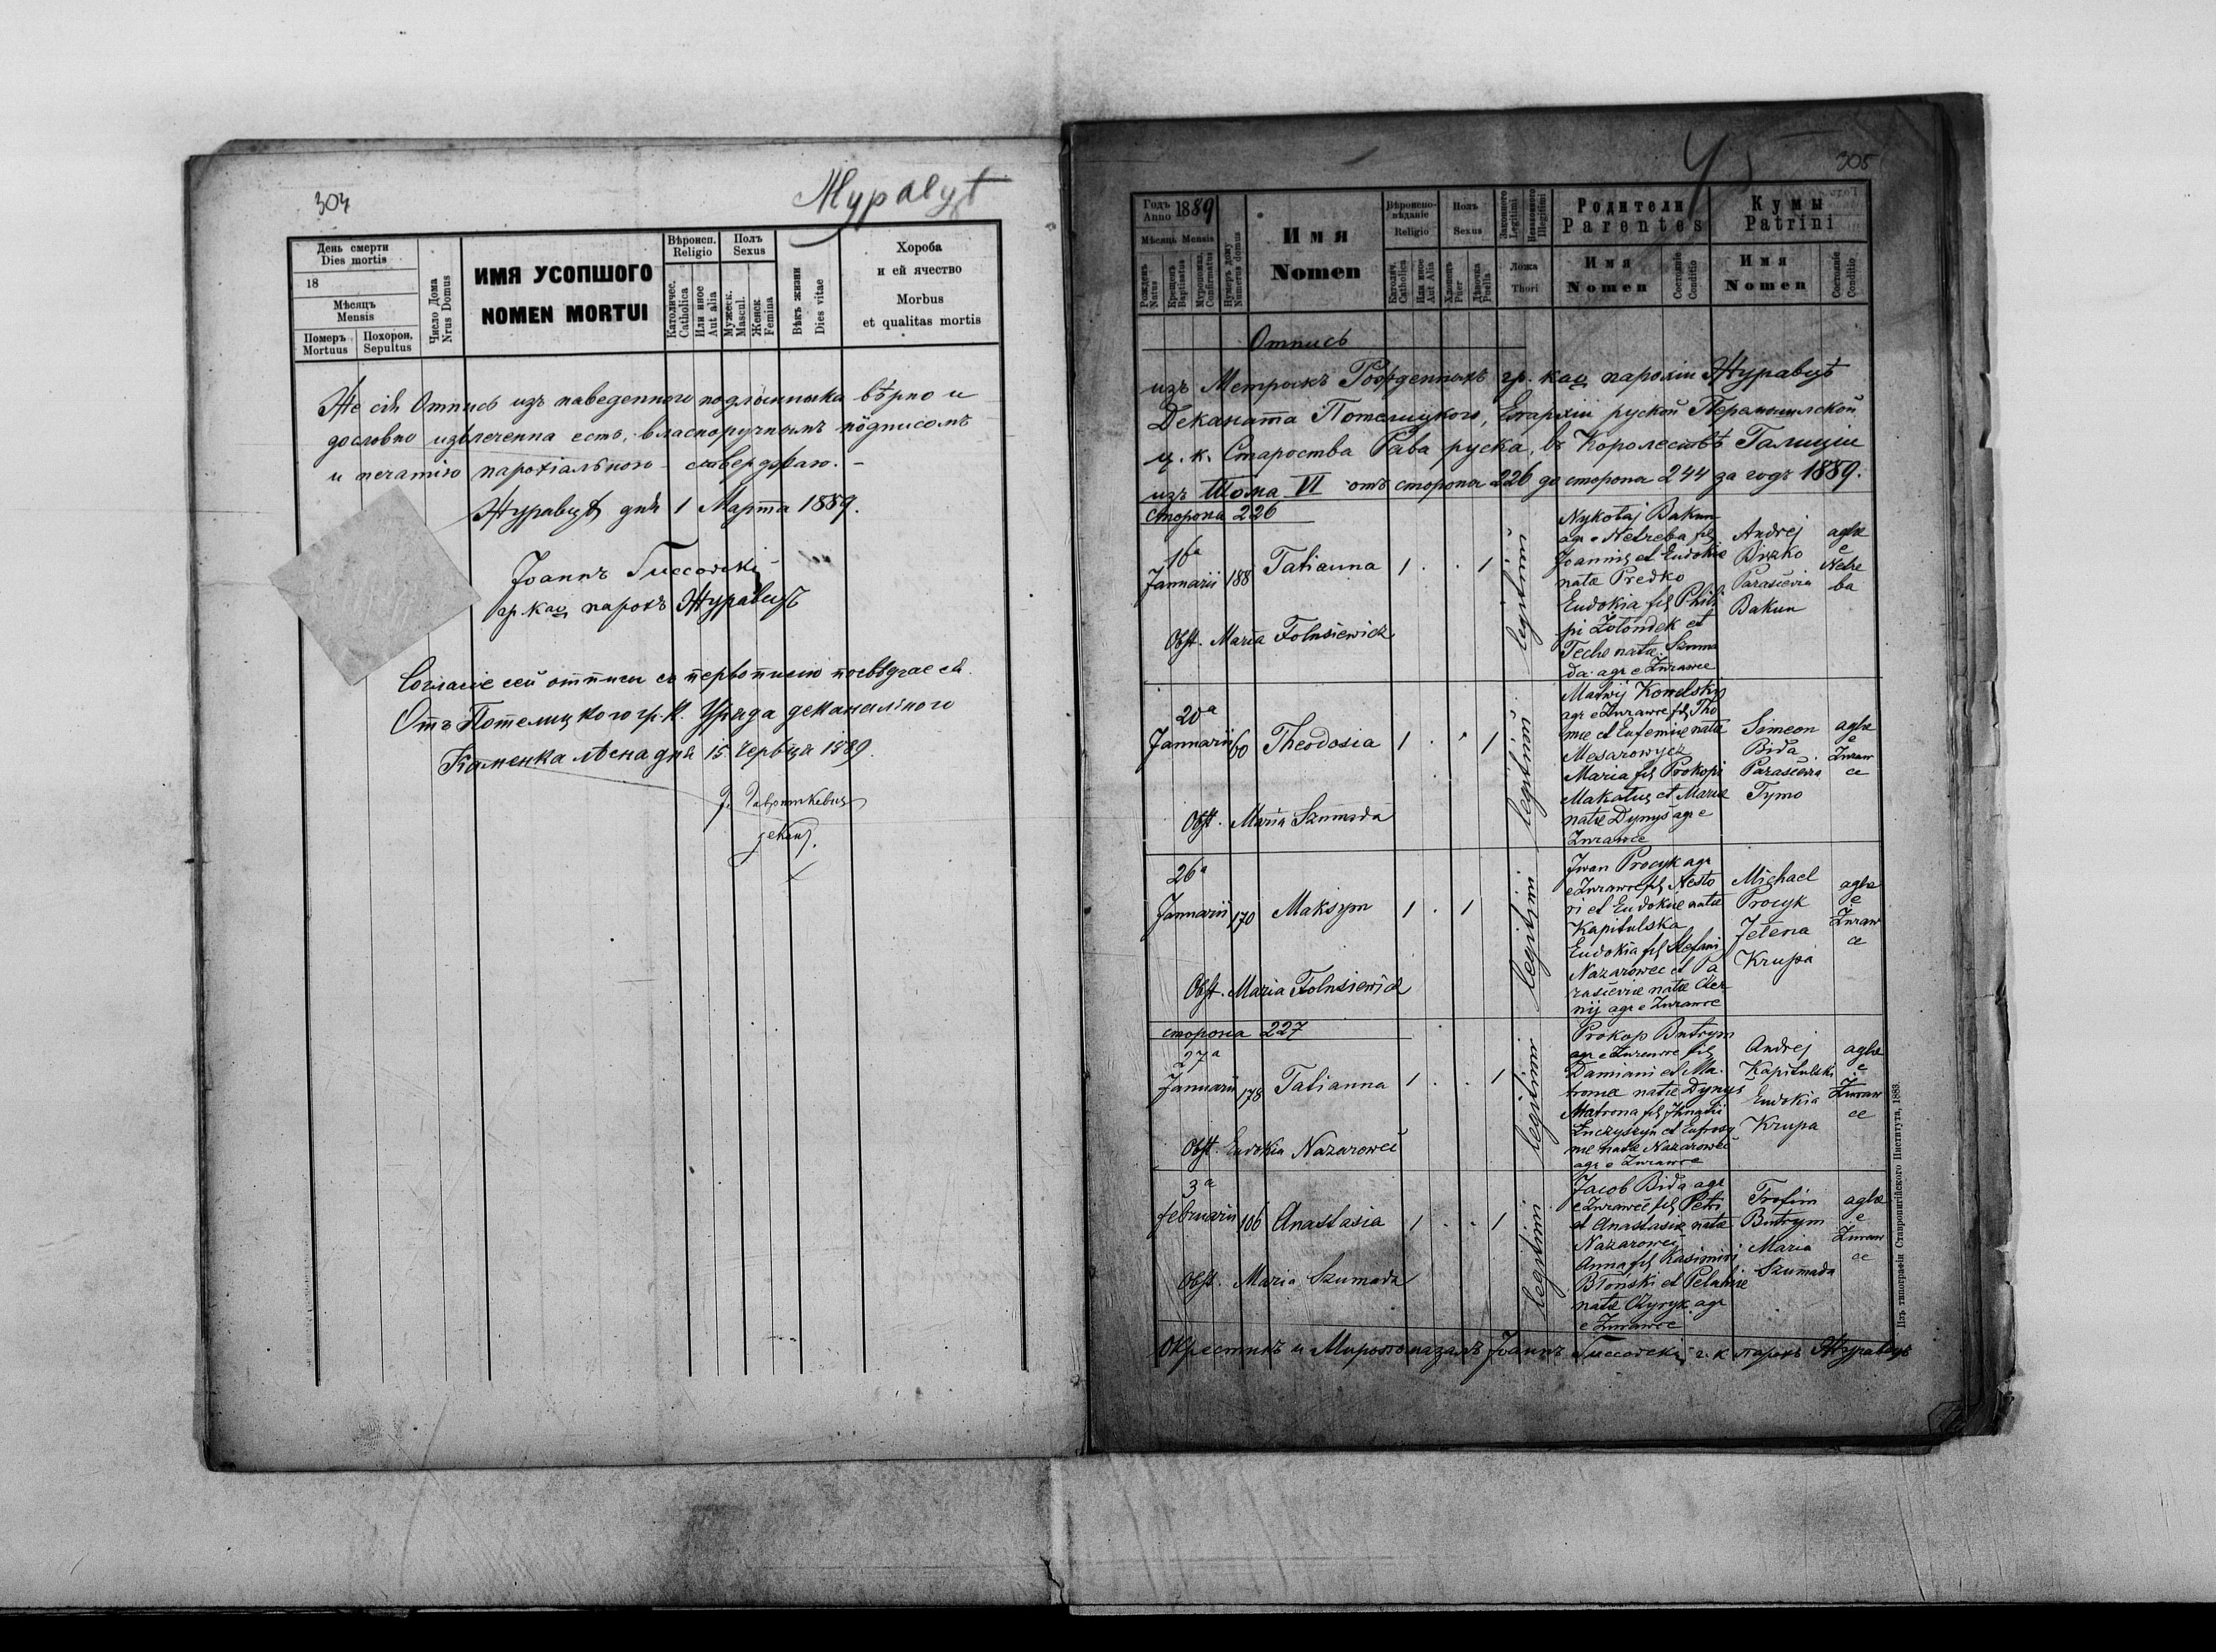 304
Журавцѣ
День смерти
Dies mortis
18
Мѣсяцъ
Mensis
Померъ
Mortuus
Похорон.
Sepultus
Число Дома
Nrus Domus
ИМЯ УСОПШОГО
NOMEN MORTUI
Вѣроисп.
Religio
Католичес.
Catholica
Или иное
Aut alia
Полъ
Sexus
Мужеск.
Mascul.
Женск
Femina
Вѣкъ жизни
Dies vitae
Хороба
и ей ячество
Morbus
et qualitas mortis
Же сія Отпись изъ наведенного подлинника вѣрно и
дословно извлеченна есть, власноручнымъ пôдписомъ
и печатію парохіальною ствержаю. –
Журавцѣ дня 1 Марта 1889.
Іоаннъ
гр. као парохъ Журавцѣ
Согласіе сей отписи съ первописію посвѣдчае ся.
Отъ Потелицкого гр. к. Уряда деканального
Каменка лѣсна дня 15 Червця 1889.
декан.
305
Годъ
Anno 1889
Мѣсяць Mensis
Рожденъ
Natus
Крещенъ
Baptisatus
Муропомаз.
Confirmatus
Нумеръ дому
Numerus domus
Имя
Nomen
Вѣроиспо-
вѣданіе
Religio
Католич.
Catholica
Или иное
Aut Alia
Полъ
Sexus
Хлопець
Puer
Дѣвочка
Puella
Законного
Legitimi
Незаконного
Illegitimi
Ложа
Thori
Родители
Parentes
Имя
Nomen
Состояніе
Conditio
Кумы
Patrini
Имя
Nomen
Состояніе
Conditio
Отпись
изъ Метрыкъ Рожденныхъ гр. као парохіи Журавцѣ
Деканата Потелицкого, Епархіи руской Перемышлской
ц. к. Староства Рава руска, въ Королествѣ Галиціи
изъ Тома VI отъ сторона 226 до сторона 244 за годъ 1889.
сторона 226
16a
Januarii 188 Tatianna 1 . . 1 legitimi
Nykołaj Bakun
agr e Netreba fil
Joannis et Eudokie
natæ Predko
Eudokia fil Phili
pi Żołondek et
Tecle natæ Szuma
da agr e Żurawce
Andrej
Buzko
Parasievia
Bakun
aglæ
e
Netre
ba
Obst. Maria Fołusiewicz
20a
Januarii 60 Theodosia 1 . . 1 legitimi
Matwij Konelskij
agr e Żurawce fil Tho
mæ et Eufemiæ natæ
Mesarowycz
Maria fil Prokopi
Makatus et Mariæ
natæ Dynys agr e
Żurawce
Simeon
Bida
Parasievia
Tymo
aglæ
e
Żuraw
ce
Obst. Maria Szumada
26a
Januarii 170 Maksym 1 . 1 legitimi
Iwan Procyk agr
e Żurawce fil Nesto
ri et Eudokiæ natæ
Kapitulska
Eudokia fil Stefani
Nazarowec et Pa
rasieviæ natæ Czer
nij agr e Żurawce
Michael
Procyk
Jełena
Krupa
aglæ
e
Żuraw
ce
Obst. Maria Fołusiewicz
сторона 227
27a
Januarii 178 Tatianna 1 . . 1 legitimi
Prokop Butrym
agr e Żurawce fil
Damiani et Ma-
tronæ natæ Dynys
Matrona fil Ihnatii
Łuczyszyn et Eufrosy
næ natæ Nazarowec
agr e Żurawce
Andrej
Kapitulski
Eudokia
Krupa
aglæ
e
Żuraw
ce
Obst. Eudokia Nazarowec
3a
februarii 106 Anastasia 1 . . 1 legitimi
Jacob Bida agr
e Żurawce fil Petri
et Anastasiæ natæ
Nazarowec
Anna fil Kasimiri
Błonski et Pelahiæ
natæ Czyryk agr
e Żurawce
Trofim
Butrym
Maria
Szumada
aglæ
e
Żuraw
ce
Obst. Maria Szumada
Окрестилъ и Миропомазалъ Іоаннъ г. к парохъ Журавцѣ
Изъ типографіи Ставропигійского Института, 1883.